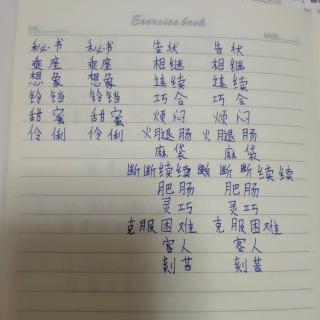 Exercise book
秘书 秘书 告状 告状
乘座 乘座 相继 相继
想象 想象 连续 连续
铃铛 铃铛 巧合 巧合
甜蜜 甜蜜 烦闷 烦闷
伶俐 伶俐 火腿肠 火腿肠
麻袋 麻袋
断断续续 断断续续
肥肠 肥肠
灵巧 灵巧
克服困难 克服困难
客人 客人
刻苦 刻苦